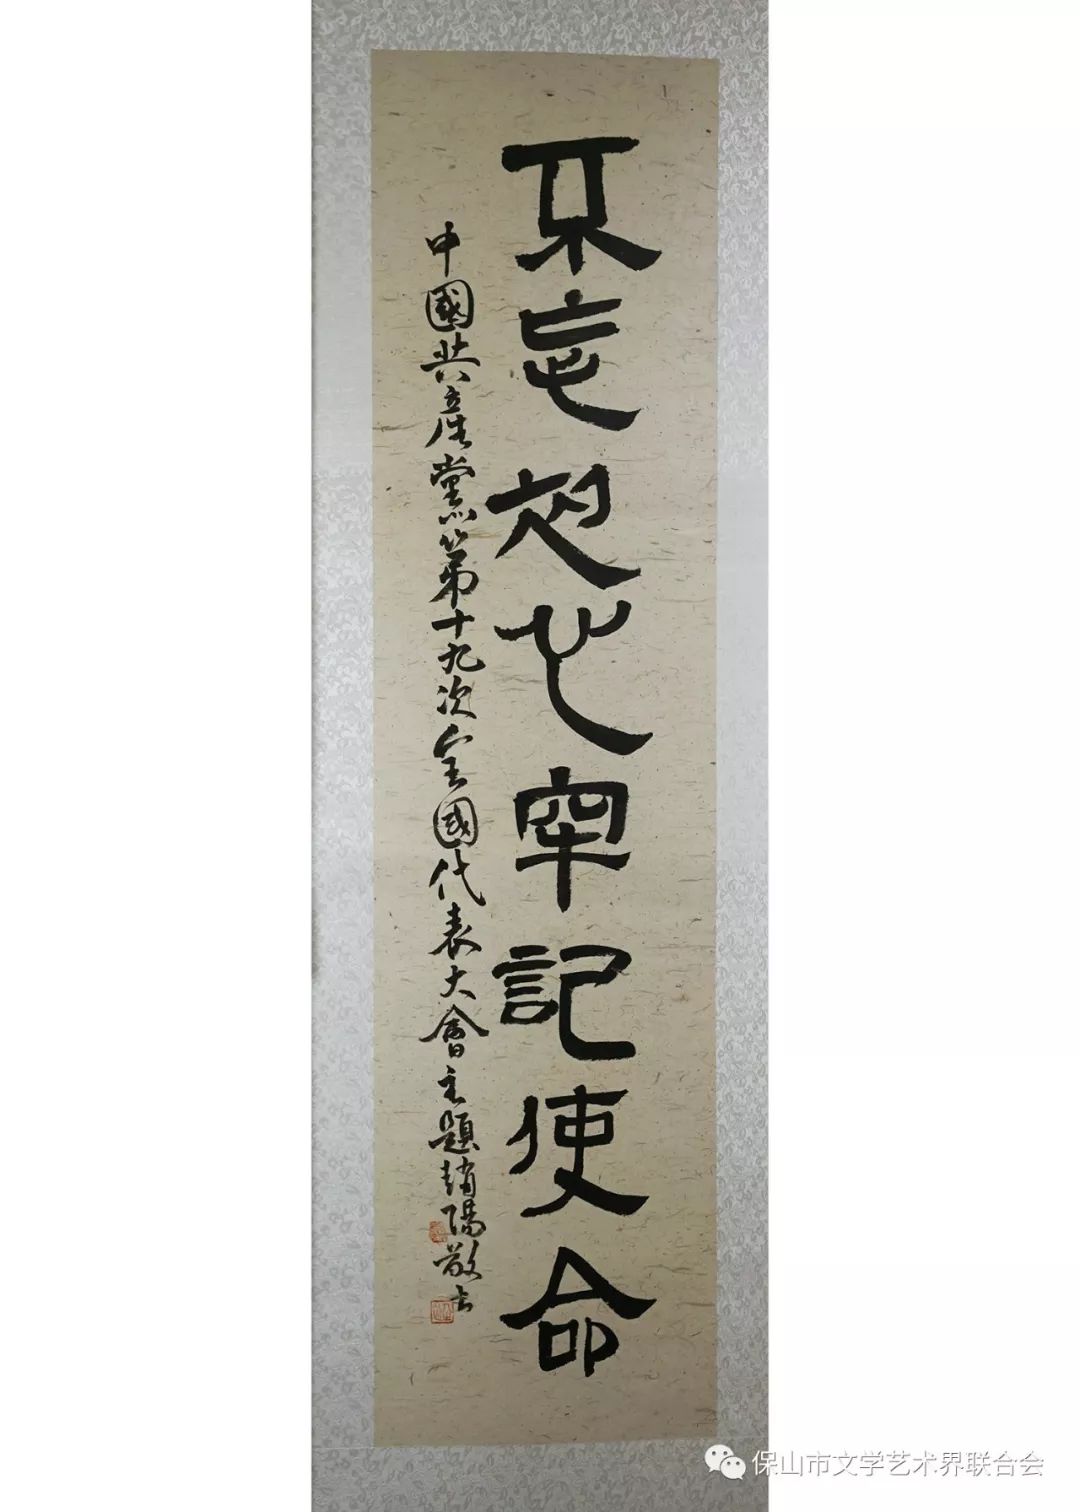 不忘初心牢記使命
中國共產黨第十九次全國代表大會主題趙陽敬书
保山市文学艺术界联合会